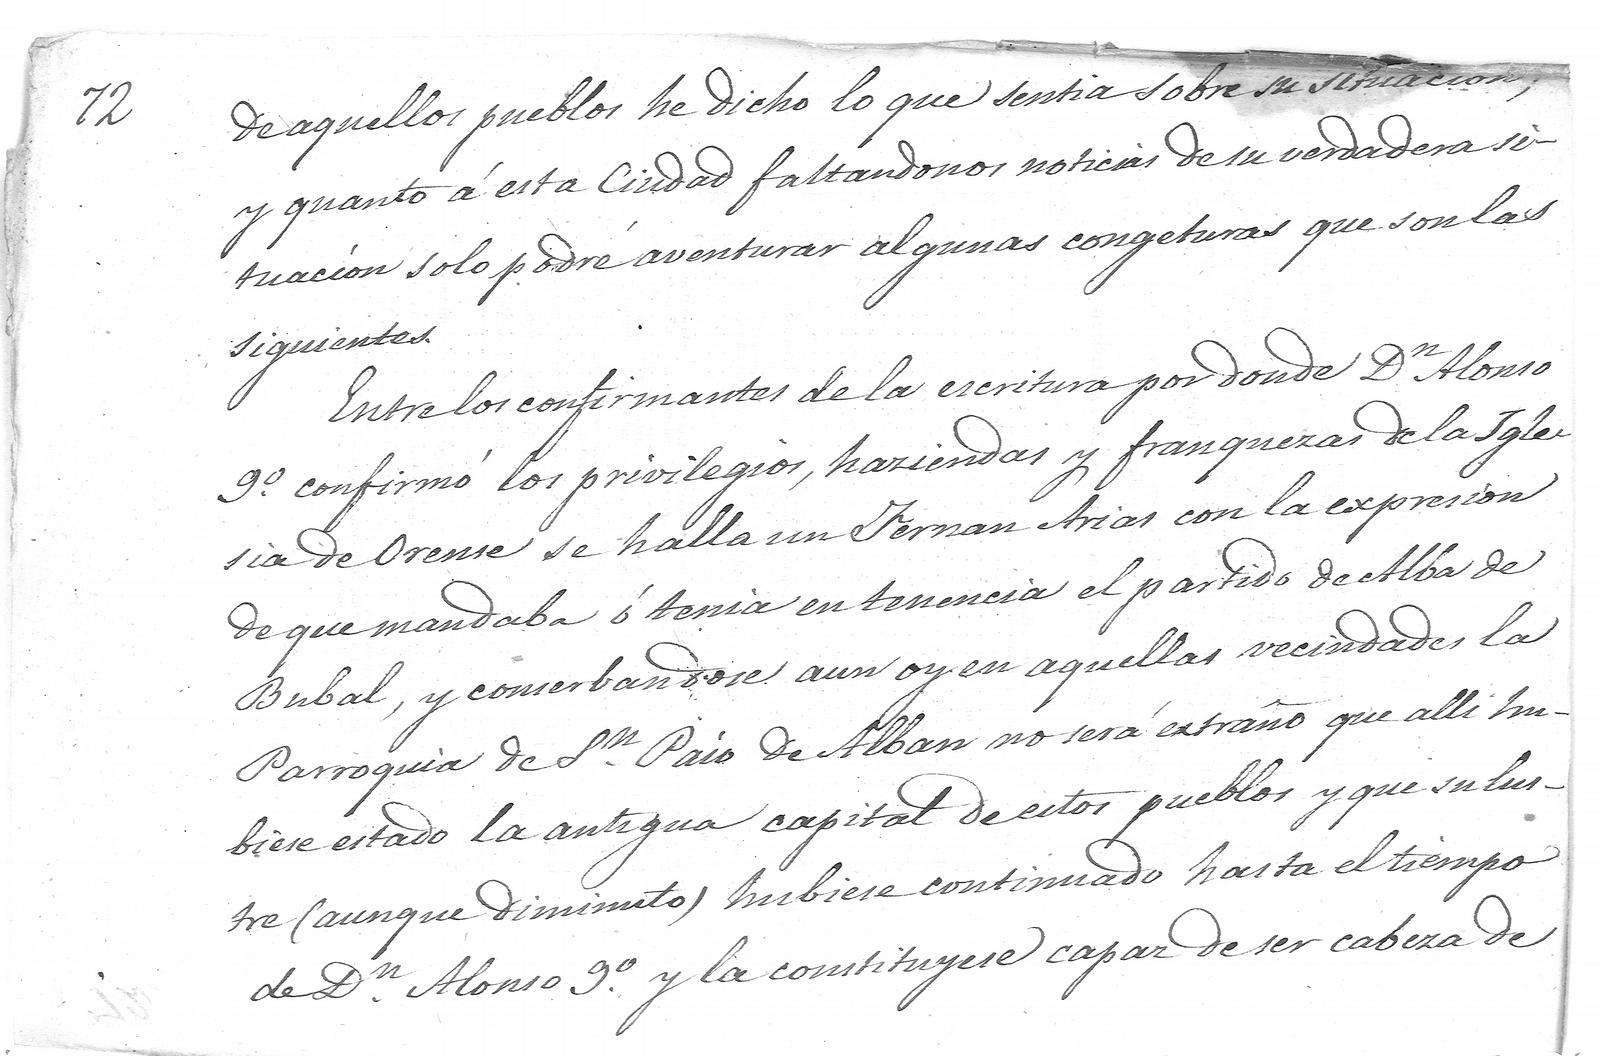 72
de aquellos pueblos he dicho lo que sentia sobre su situacion,
y quanto á esta Ciudad faltandonos noticias de su verdadera si-
tuacion solo podré aventurar algunas congeturas que son las
siguientes.
Entre los confirmantes de la escritura por donde Dn. Alonso
9º. confirmó los privilegios, haziendas y franquezas de la Igle-
sia de Orense se halla un Fernan Arias con la expresion
de que mandaba ó tenia en tenencia el partido de Alba de
Bubal, y conserbandose aun oy en aquellas vecindades la
Parroquia de Sn. Paio de Alban no será extraño que alli hu-
biese estado la antigua capital de estos pueblos y que su lus-
tre (aunque diminuto) hubiese continuado hasta el tiempo
de Dn. Alonso 9º. y la constituyese capaz de ser cabeza de